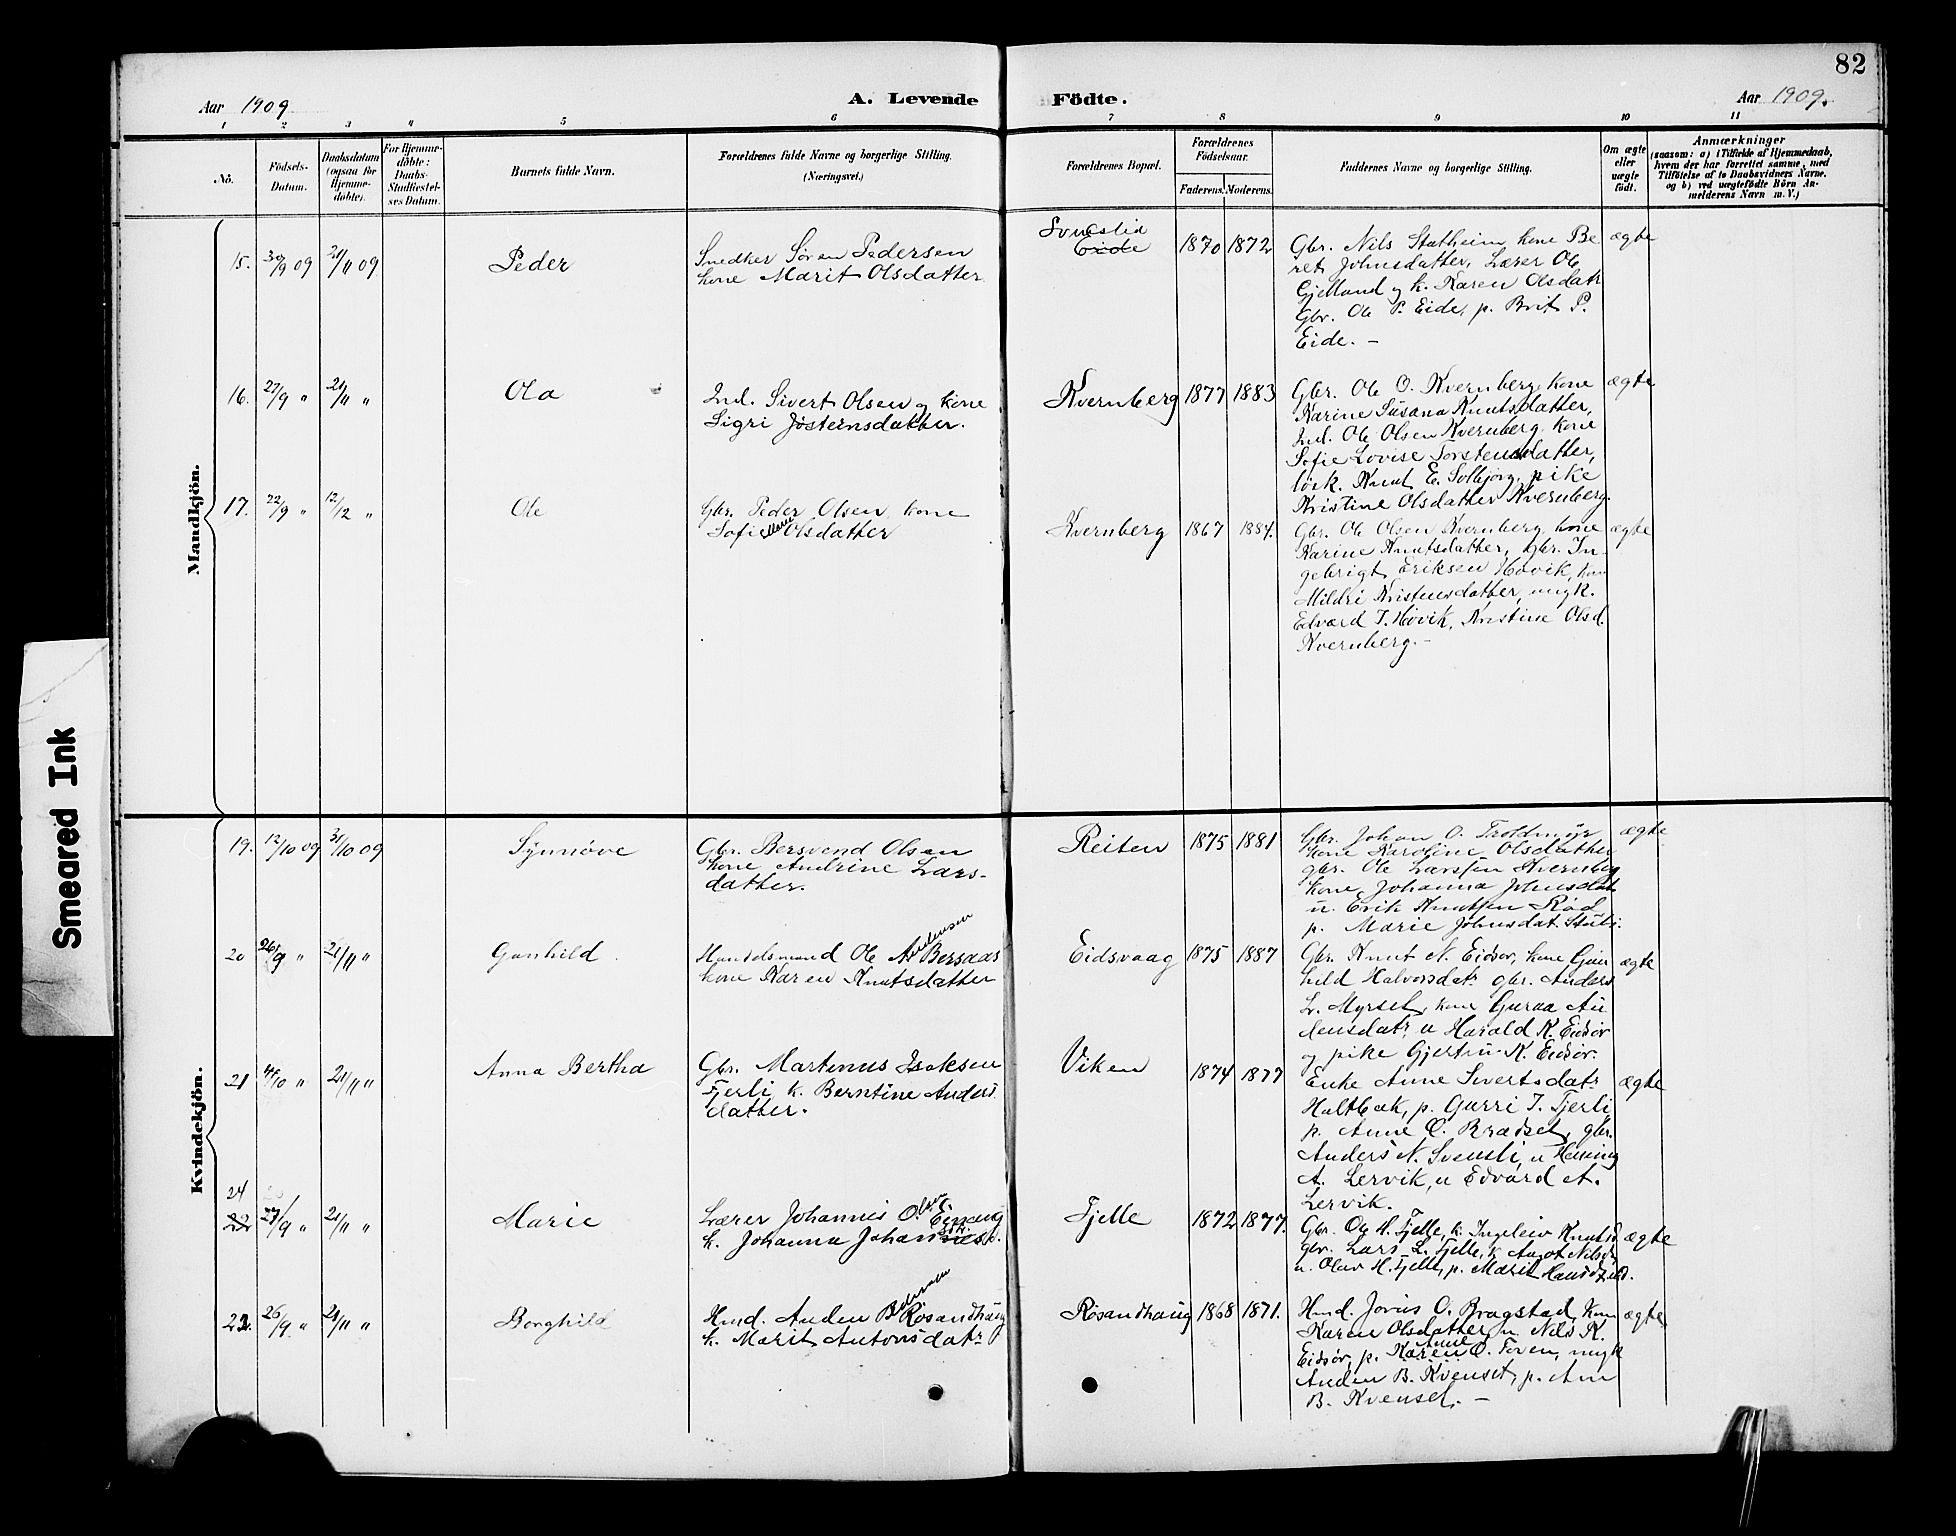 82
Aar 1909
A. Levende Födte.
Aar 1909.
1 2 3 4 5 6 7 8 9 10 11
No.
Födsels-
Datum.
Daabsdatum
(ogsaa for
Hjemme-
döbte).
For Hjemme-
döbte:
Daabs-
Stadfæstel-
ses Datum.
Barnets fulde Navn.
Forældrenes fulde Navne og borgerlige Stilling.
(Næringsvei.)
Forældrenes Bopæl.
Forældrenes
Födselsaar.
Faderens. Moderens.
Faddernes Navne og borgerlige Stilling.
Om ægte
eller
uægte
födt.
Anmærkninger
(saasom: a) i Tilfælde af Hjemmedaab,
hvem der har forrettet samme, med
Tilföielse af to Daabsvidners Navne,
og b) ved uægtefödte Börn An-
melderens Navn m. V.)
Mandkjön.
15. 30/9 09 21/11 09
Peder
Snedker Sören Pedersen
kone Marit Olsdatter
Eide
1870 1872
Gbr. Nils Statheim, kone Be
ret Johnsdatter, Lærer Ole
Gjelland og k. Karen Olsdatr
Gbr. Ole P. Eide, p. Brit P.
Eide. –
ægte
16. 27/9 " 21/11 "
Ola
Ind. Sivert Olsen og kone
Sigri Jøsternsdatter.
Kvernberg
1877 1883
Gbr. Ole O. Kvernberg, kone
Karine Susana Knutsdatter,
Ind. Ole Olsen Kvernberg, kone
Sofie Lovise Torstensdatter,
løsk. Knut E. Solbjørg, pike
Kristine Olsdatter Kvernberg.
ægte
17. 22/9 " 12/12 "
Ole
Gbr. Peder Olsen, kone
Sofie Olsdatter
Kvernberg
1867 1884.
Gbr. Ole Olsen Kvernberg, kone
Karine Knutsdatter, Gbr. In-
gebrigt Eriksen Hovik, kone
Mildri Kristensdatter, ungk.
Edvard I. Hovik, Kristine Olsd.
Kvernberg. –
ægte
Kvindekjön.
19. 12/10 09 31/10 09
Synnøve
Gbr. Bersvend Olsen
kone Andrine Lars-
datter.
Reiten
1875 1881
Gbr. Johan O. Troldmyr
kone Karoline Olsdatter
gbr. Ole Larsen Kvernberg
kone Johanna Johnsdat
u. Erik Knutsen Rød
p. Marie Johnsdat.
ægte
20 26/9 " 21/11 "
Gunhild.
Handelsmand Ole A. Bersaas
Andersen
kone Karen Knutsdatter
Eidsvaag
1875 1887
Gbr. Knut N. Eidsør, kone Gun
hild Halvorsdatr gbr. Anders
Lr. Myrset, kone Guraa An
densdatr, u Harald K. Eidsør
og pike Gjertru K. Eidsør.
ægte
21 4/10 " 21/11 "
Anna Bertha
Gbr. Martinus Isaksen
Fjerli k. Berntine Anders
datter.
Viken
1874 1877
Enke Anne Sivertsdatr
Holtbak, p. Gurri I. Fjerli
p. Anne O. Bradset, gbr.
Anders N. Svensli, u Henning
A. Lervik, u Edvard A.
Lervik.
ægte
24
22 27/9 " 21/11 "
Marie
Lærer Johannes O. Einang
Olsen
k. Johanna
Fjelle
1872 1877.
Gbr. Ole H. Fjelle, k. Ingeleiv Knutsd
gbr. Lars L. Fjelle, k Aagot Nilsd
u. Olav H. Fjelle, p. Marit
ægte
22. 26/9 " 21/11 "
Borghild
Hmd. Anden B. Røsandhaug
k. Marit Antonsdatr
Røsandhaug
1868 1871.
Hmd. Jonus O. Bragstad, kone
Karen Olsdatter, u. Nils K.
Eidsør, p. Karen O. Toven, ungk
Anne
Anden B. Kvenset, p. Ane
B. Kvenset. –
ægte
Smeared Ink